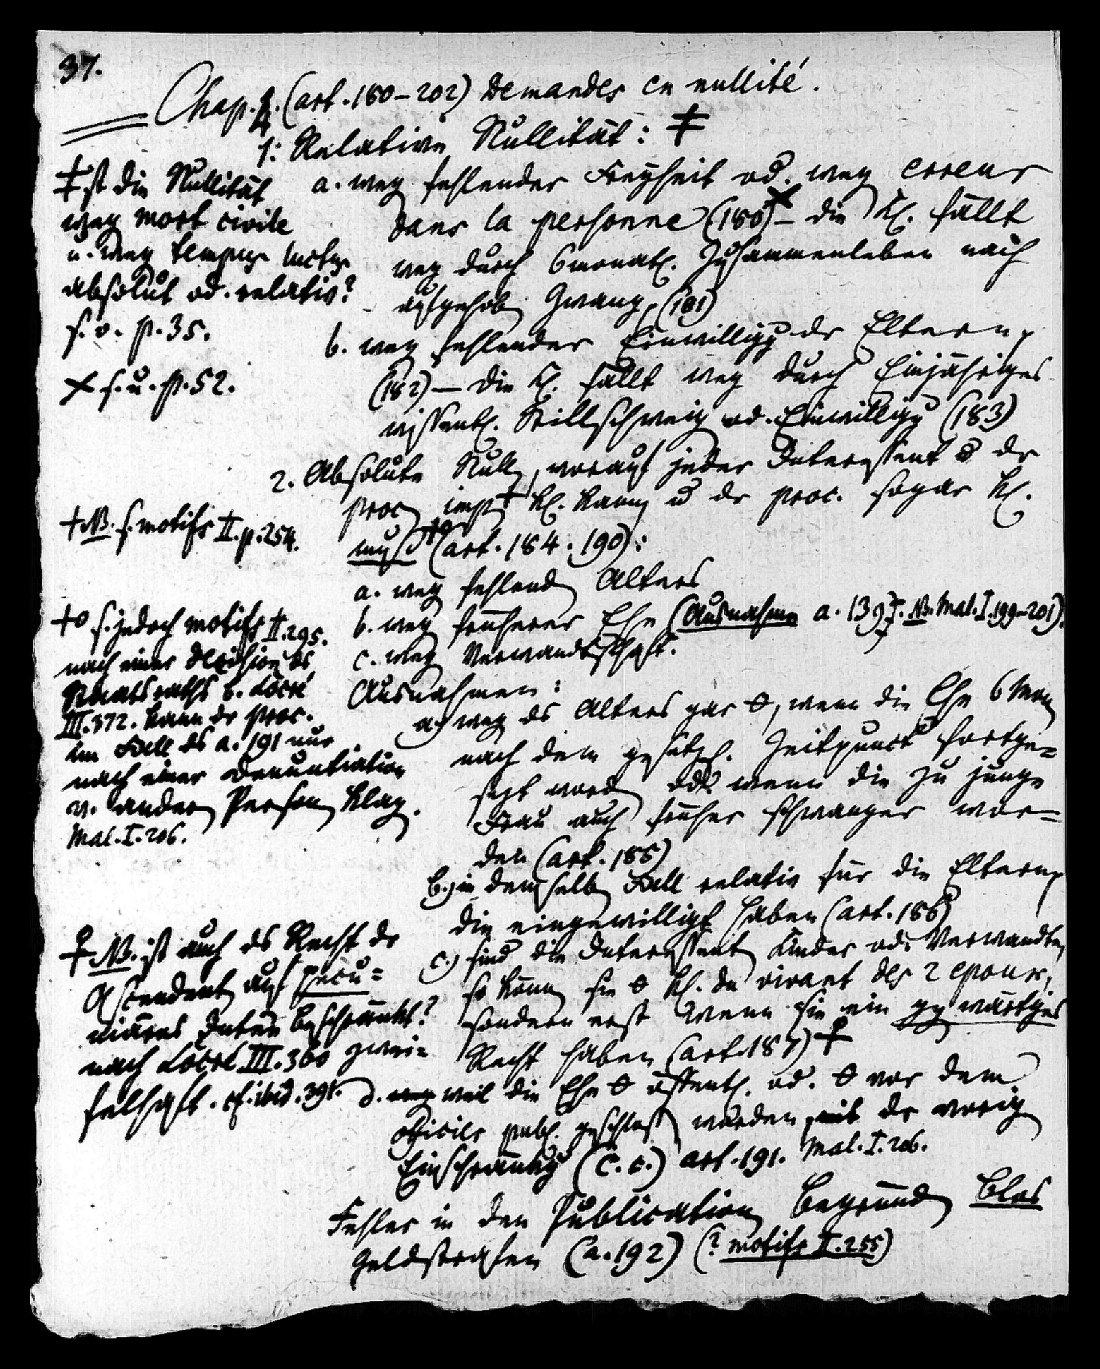 37.
Chap. 4. (art. 180–202) Demandes en nullité.
1: Relative Nullität: ‡
a. weg fehlender Freyheit od. weg erreur
dans la personne (180)× – die Kl. fällt
weg durch 6monatl. Zusammenleben nach
aufgehob Zwang. (181)
b. weg fehlender Einwilligg dr Eltern,
(182) – die Kl. fällt weg durch Einjähriges
wissentl. Stillschweig od. Einwilligg (183)
2. Absolute Null, worauf jeder Interessent u dr
proc imp† kl. kann u dr proc. sogar kl.
muß †o (art. 184. 190):
a. weg fehlend Alters
b. weg früherer Ehe (Ausnahme a. 139. NB. Mal. I. 199–201).
c. weg Verwandtschaft.
Ausnahmen:
a.) weg ds Alters gar θ, wenn die Ehe 6 Mon
nach dem gesetzl. Zeitpunct fortge=
setzt word oder wenn die zu junge
Frau auch früher schwanger wor=
den (art. 185)
b.) in demselb Fall relativ für die Eltern,
die eingewilligt haben (art. 186)
c.) sind die Interessent Kinder od. Verwandte,
so könn sie θ kl. du vivant des 2 epoux,
sondern erst wenn sie ein ggwärtges
Recht haben (art. 187) ♀
d. weil die Ehe θ öffentl. od. θ vor dem
Officier publ. geschloss worden, mit dr vorig
Einschränkg (c. c.) art. 191. Mal. I. 206.
Fehler in den Publication begründ blos
Geldstrafen (a. 192) (? motifs II. 255)
‡ ist die Nullität
weg mort civile
u. weg tempus luctus
absolut od. relativ?
s. o. p. 35.
× s. u. p. 52.
† NB. s. motifs II. p. 254.
†o s. jedoch motifs II. 295.
nach einer Decision ds
Staatsraths b. Locré
III. 372. kann dr proc.
im Fall ds a. 191 nur
nach einer Denuntiation
v. ander Person klag.
Mal. I. 206.
♀ NB. ist auch ds Recht dr
Ascendent auf pecu=
niäres Interesse beschränkt?
nach Locré III. 360 zwei=
felhaft. cf. ibid. 391.